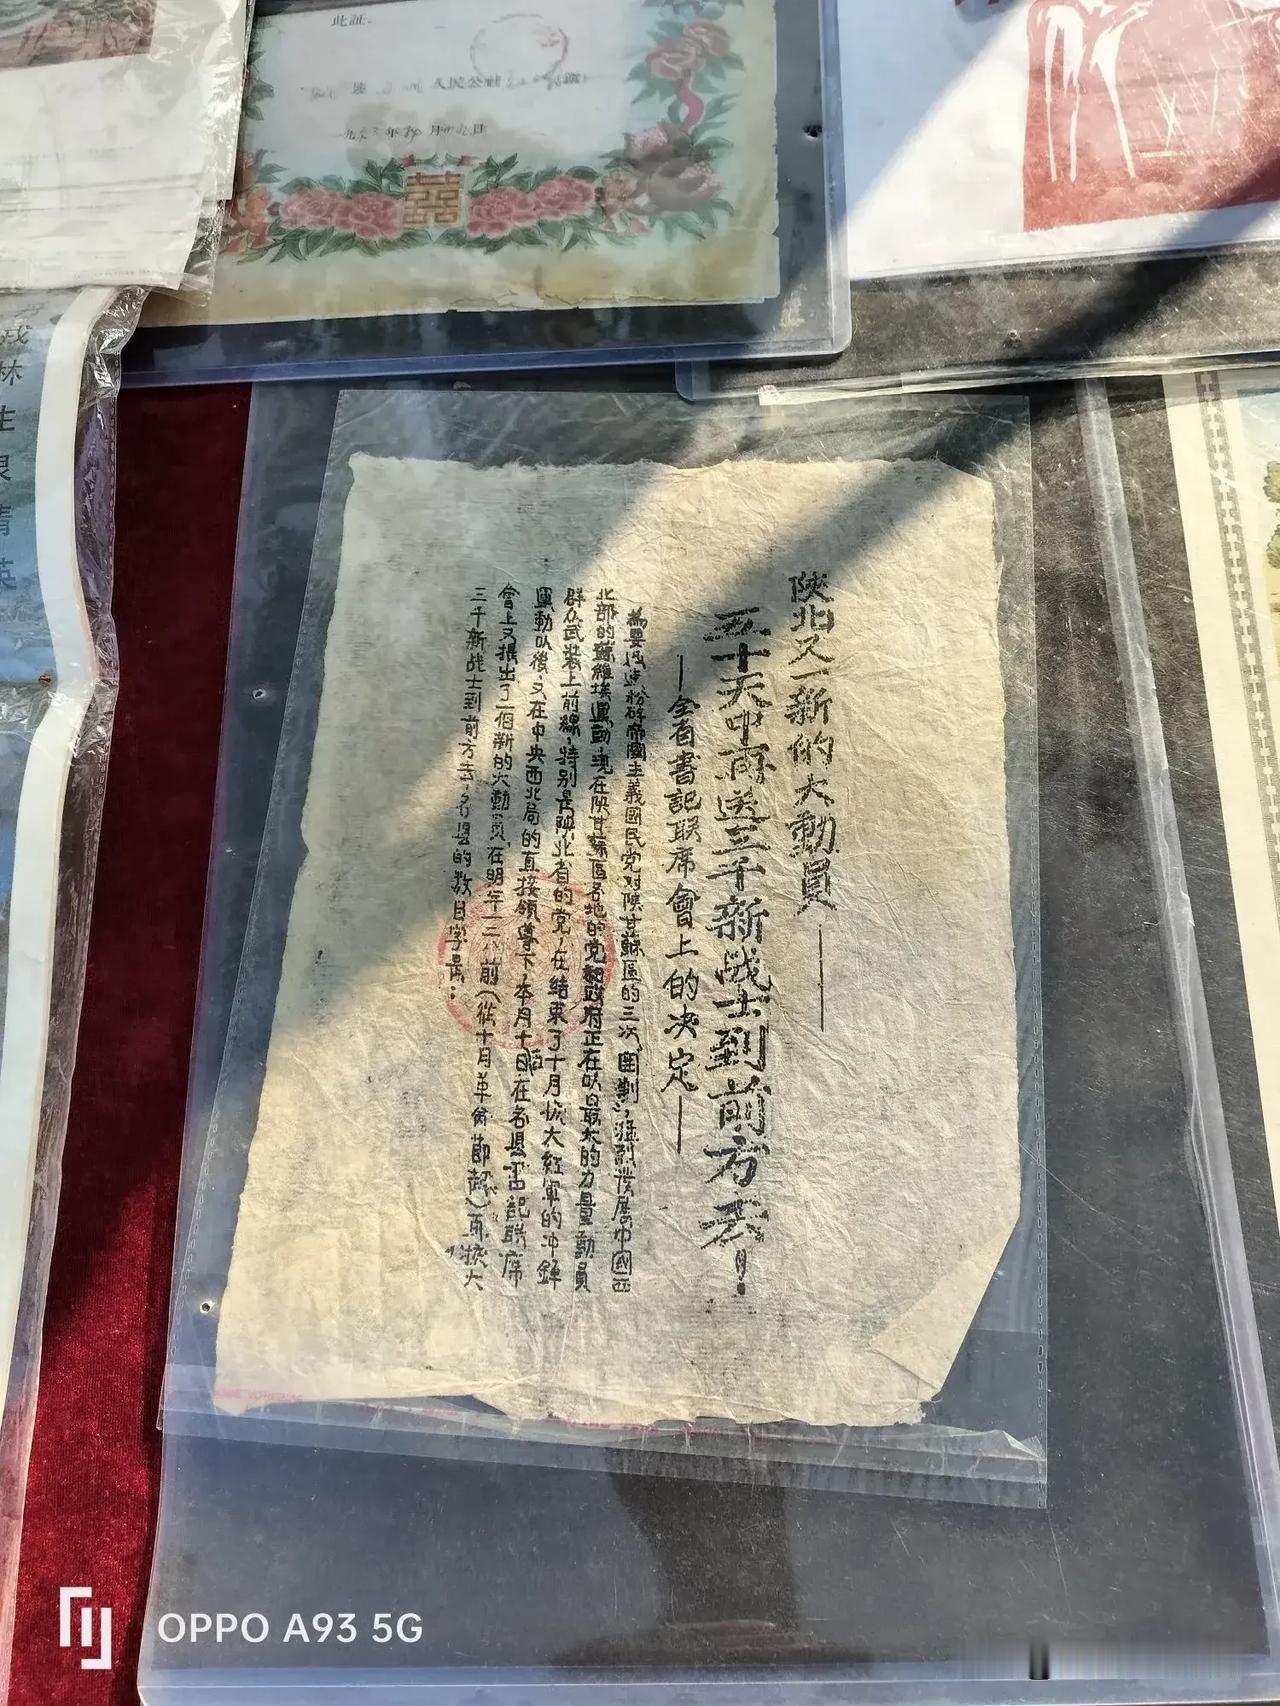 此証
人民公社
囍
成
林
生
良
青
英
陝北又一新的大動員——
五十天中再送三千新战士到前方去！
—全省書記联席會上的决定—
為要迅速粉碎帝國主義國民党对陝甘蘇區的三次「囲剿」，猛烈發展中國西
北部的蘇維埃運動，現在陝甘蘇區各地的党和政府正在以最大的力量動員
群众武装上前線，特别是陝北省的党，在結束了十月拡大紅軍的冲鋒
運動以後，又在中央西北局的直接領導下，本月十日在各县書記联席
會上又提出了一個新的大動員，在明年一二八前（從十月革命節起）再拡大
三千新战士到前方去，各县的数目字是：
OPPO A93 5G